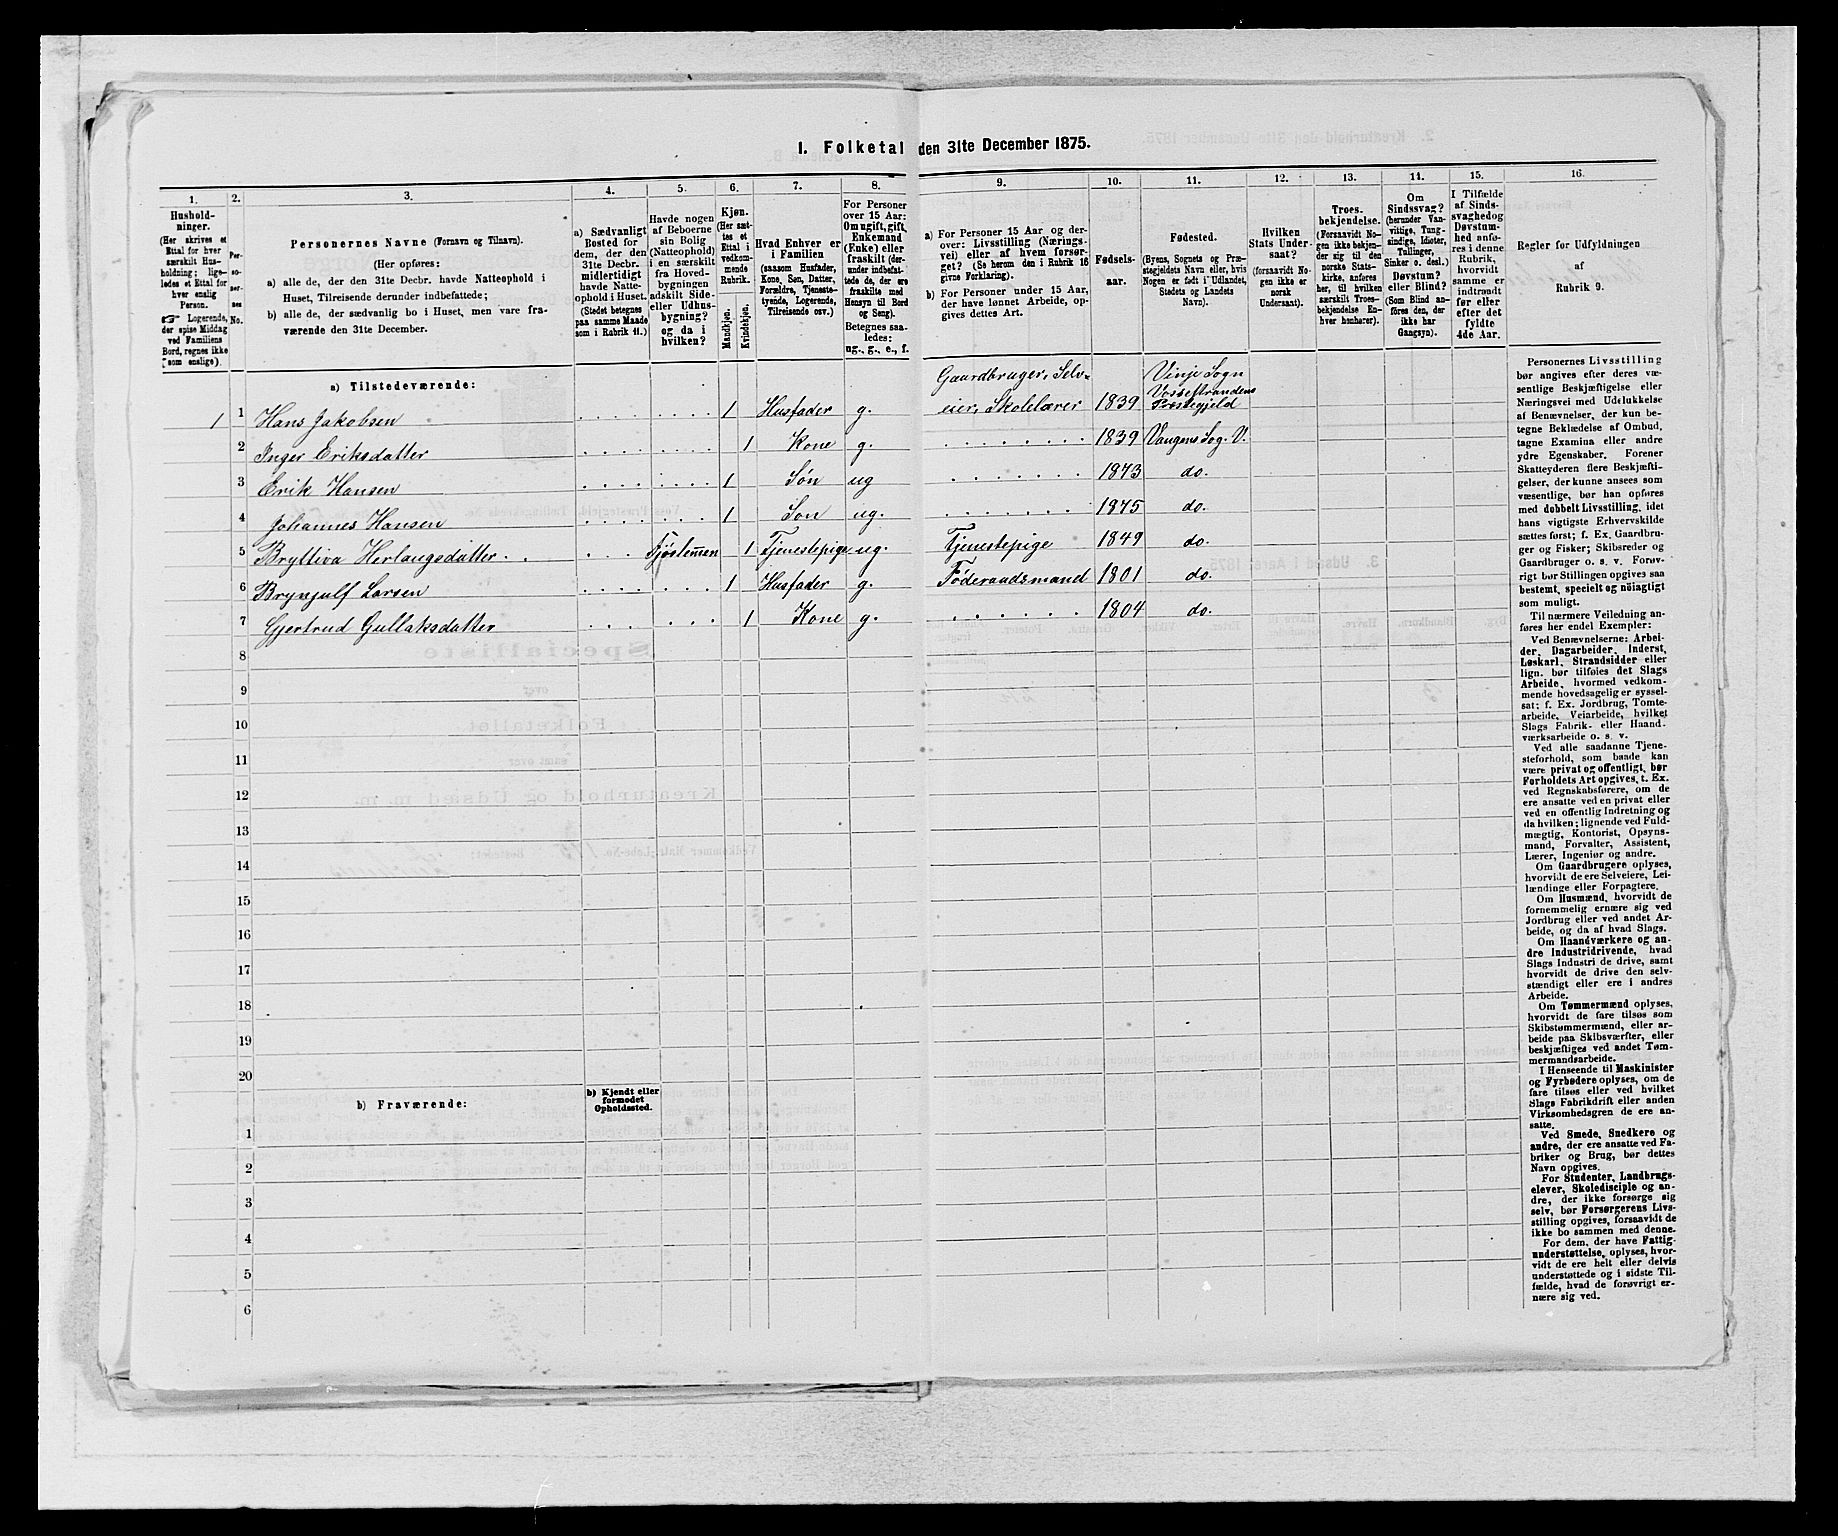 I. Folketal den 31te December 1875.
1. 2. 3. 4. 5. 6. 7. 8. 9. 10. 11. 12. 13. 14. 15. 16.
Hushold-
ninger.
(Her skrives et
Ettal for hver
særskilt Hus-
holdning; lige-
ledes et Ettal for
hver enslig
Person.
☞ Logerende,
der spise Middag
ved Familiens
Bord, regnes ikke
som enslige).
Per-
so-
ner-
nes
No.
Personernes Navne (Fornavn og Tilnavn).
(Her opføres:
a) alle de, der den 31te Decbr. havde Natteophold i
Huset, Tilreisende derunder indbefattede;
b) alle de, der sædvanlig bo i Huset, men vare fra-
værende den 31te December.
a) Sædvanligt
Bosted for
dem, der den
31te Decbr.
midlertidigt
havde Natte-
ophold i Huset.
(Stedet betegnes
paa samme Maade
som i Rubrik 11.)
Havde nogen
af Beboerne
sin Bolig
(Natteophold)
i en særskilt
fra Hoved-
bygningen
adskilt Side-
eller Udhus-
bygning?
og da i
hvilken?
Kjøn.
(Her sæt-
tes et
Ettal i
vedkom-
mende
Rubrik.
Mandkjøn.
Kvindekjøn.
Hvad Enhver er
i Familien
(saasom Husfader,
Kone, Søn, Datter,
Forældre, Tjeneste-
tyende, Logerende,
Tilreisende osv.)
For Personer
over 15 Aar:
Om ugift, gift,
Enkemand
(Enke) eller
fraskilt (der-
under indbefat-
tede de, der ere
fraskilte med
Hensyn til Bord
og Seng).
Betegnes saa-
ledes:
ug., g., e., f.
a) For Personer 15 Aar og der-
over: Livsstilling (Nærings-
vei) eller af hvem forsør-
get? (Se herom den i Rubrik 16
givne Forklaring).
b) For Personer under 15 Aar,
der have lønnet Arbeide, op-
gives dettes Art.
Fødsels-
aar.
Fødested.
(Byens, Sognets og Præ-
stegjeldets Navn eller, hvis
Nogen er født i Udlandet,
Stedets og Landets
Navn).
Hvilken
Stats Under-
saat?
(forsaavidt No-
gen ikke er
norsk
Undersaat).
Troes-
bekjendelse.
(Forsaavidt No-
gen ikke bekjen-
der sig til den
norske Stats-
kirke, anføres
her, til hvilken
særskilt Troes-
bekjendelse En-
hver henhører).
Om
Sindssvag?
(herunder Van-
vittige, Tung-
sindige, Idioter,
Tullinger,
Sinker o. desl.)
Døvstum?
eller Blind?
(Som Blind an-
føres den, der
ikke har
Gangsyn).
I Tilfælde
af Sinds-
svaghed og
Døvstum-
hed anfø-
res i denne
Rubrik,
hvorvidt
samme er
indtraadt
før eller
efter det
fyldte
4de Aar.
Regler for Udfyldningen
af
Rubrik 9.
a) Tilstedeværende:
1 1 Hans Jakobsen 1 Husfader g. Gaardbruger, Selv-
eier, Skolelærer 1839 Vinje Sogn
Vossestrandens
Præstegjeld
2 Inger Eriksdatter 1 Kone g. 1839 Vangens Sog. V.
3 Erik Hansen 1 Søn ug 1873 do.
4 Johannes Hansen 1 Søn ug. 1875 do.
5 Bryttiva Herlaugsdatter 1 Tjenestepige ug. Tjenestepige 1849 do.
6 Brynjulf Larsen 1 Husfader g. Føderaadsmand 1801 do.
7 Gjertrud Gullaksdatter 1 Kone g. 1804 do.
8
9
10
11
12
13
14
15
16
17
18
19
20
b) Fraværende:
b) Kjendt eller
formodet
Opholdssted.
1
2
3
4
5
6
Personernes Livsstilling
bør angives efter deres væ-
sentlige Beskjæftigelse eller
Næringsvei med Udelukkelse
af Benævnelser, der kun be-
tegne Beklædelse af Ombud,
tagne Examina eller andre
ydre Egenskaber. Forener
Skatteyderen flere Beskjæfti-
gelser, der kunne ansees som
væsentlige, bør han opføres
med dobbelt Livsstilling, idet
hans vigtigste Erhvervskilde
sættes først; f. Ex. Gaardbru-
ger og Fisker; Skibsreder og
Gaardbruger o. s. v. Forøv-
rigt bør Stillingen opgives saa
bestemt, specielt og nöiagtigt
som muligt.
Til nærmere Veiledning an-
føres her endel Exempler:
Ved Benævnelserne: Arbei-
der, Dagarbeider, Inderst,
Løskarl, Strandsidder eller
lign. bør tilføies det Slags
Arbeide, hvormed vedkom-
mende hovedsagelig er syssel-
sat; f. Ex. Jordbrug, Tomte-
arbeide, Veiarbeide, hvilket
Slags Fabrik- eller Haand-
værksarbeide o. s. v.
Ved alle saadanne Tjene-
steforhold, som baade kan
være privat og offentligt, bør
Forholdets Art opgives, t. Ex.
ved Regnskabsførere, om de
ere ansatte ved en privat eller
ved en offentlig Indretning og
da hvilken; lignende ved Fuld-
mægtig, Kontorist, Opsyns-
mand, Forvalter, Assistent,
Lærer, Ingeniør og andre.
Om Gaardbrugere oplyses,
hvorvidt de ere Selveiere, Lei-
lændinge eller Forpagtere.
Om Husmænd, hvorvidt de
fornemmelig ernære sig ved
Jordbrug eller ved andet Ar-
beide, og da af hvad Slags.
Om Haandværkere og an-
dre Industridrivende, hvad
Slags Industri de drive, samt
hvorvidt de drive den selv-
stændigt eller ere i andres
Arbeide.
Om Tømmermænd oplyses,
hvorvidt de fare tilsøs som
Skibstømmermænd, eller ar-
beide paa Skibsværfter, eller
beskjæftiges ved andet Tøm-
mermandsarbeide.
I Henseende til Maskinister
og Fyrbødere oplyses, om de
fare tilsøs eller ved hvilket
Slags Fabrikdrift eller anden
Virksomhedsgren de ere an-
satte.
Ved Smede, Snedkere og
andre, der ere ansatte ved Fa-
briker og Brug, bør dettes
Navn opgives.
For Studenter, Landbrugs-
elever, Skoledisciple og an-
dre, der ikke forsørge sig
selv, bør Forsørgerens Livs-
stilling opgives, forsaavidt de
ikke bo sammen med denne.
For dem, der have Fattig-
understøttelse, oplyses, hvor-
vidt de ere helt eller delvis
understøttede og i sidste Til-
fælde, hvad de forøvrigt er-
nære sig ved.